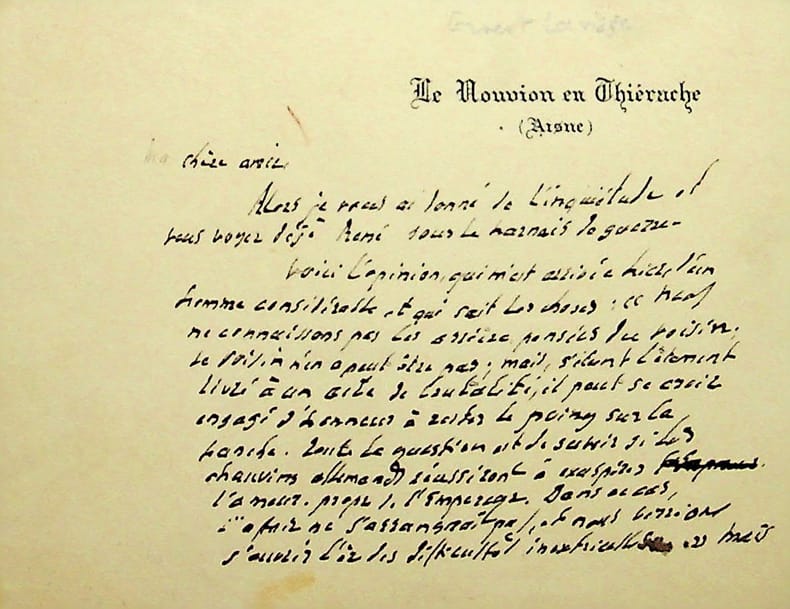 Ernest Lavisse
Le Nouvion en Thiérache
(Aisne)
Ma chère amie,
Alors je vous ai donné de l'inquiétude et
vous voyez déjà René sous le harnais de guerre.
Voici l'opinion, qui m'est arrivée hier, d'un
homme considérable et qui sait les choses : Nous
ne connaissons pas les arrière pensées du voisin.
Le voisin n'en a peut être pas ; mais, s'étant
livré à un acte de brutalité, il peut se croire
engagé d'honneur à rester le poing sur la
hanche. Toute la question est de savoir si les
chauvins allemands réussiront à exaspérer
l'amour-propre de l'Empereur. Dans ce cas,
l'affaire ne s'arrangerait pas, et nous verrions
s'ouvrir l'ère des difficultés mais